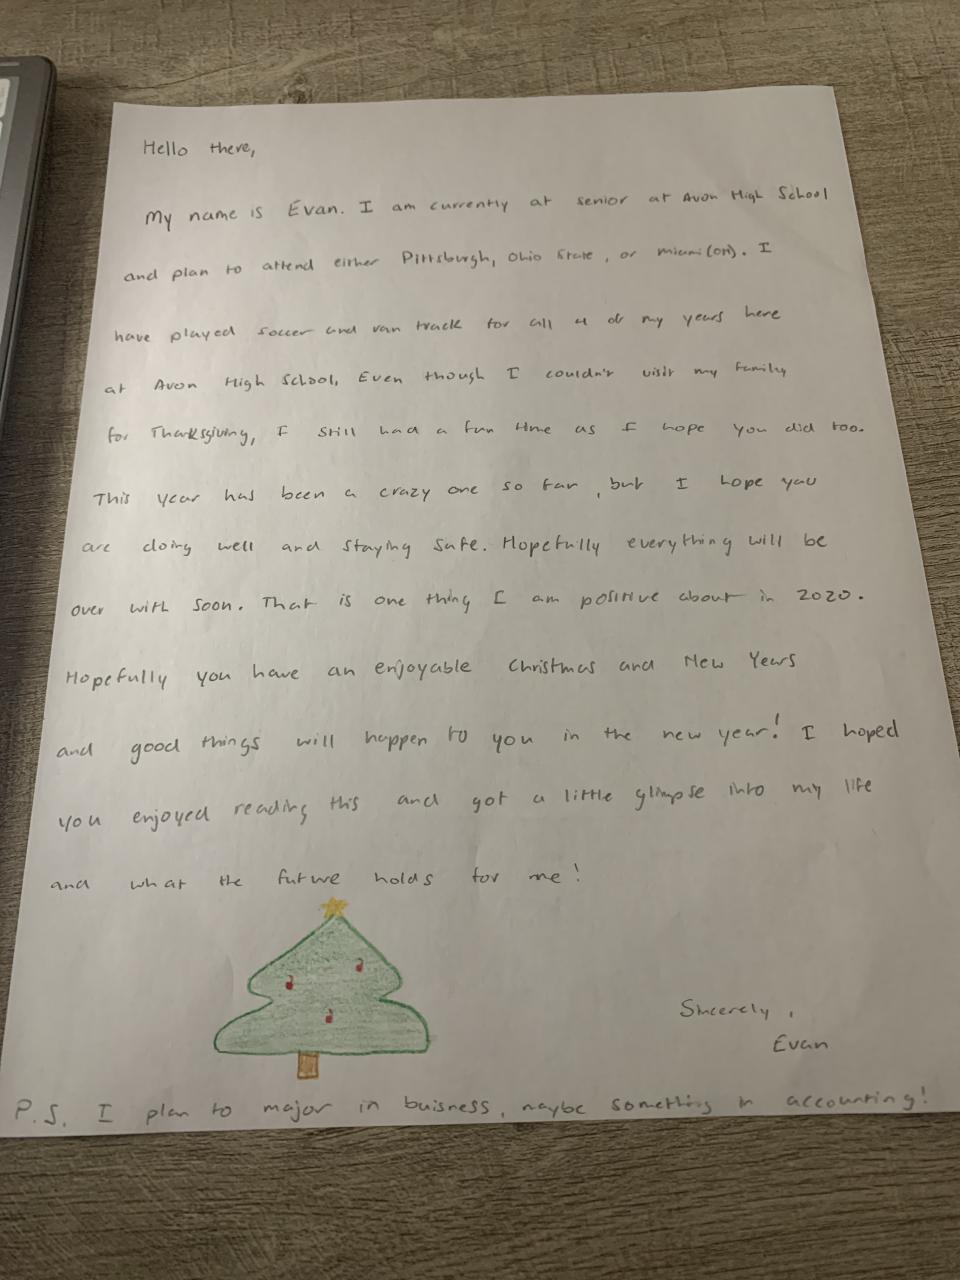 Hello there,
My name is Evan. I am currently at senior at Avon High School
and plan to attend either Pittsburgh, Ohio State, or Miami(OH). I
have played soccer and ran track for all 4 of my years here
at Avon High School. Even though I couldn't visit my family
for Thanksgiving, I still had a fun time as I hope you did too.
This year has been a crazy one so far, but I hope you
are doing well and staying safe. Hopefully everything will be
over with soon. That is one thing I am positive about in 2020.
Hopefully you have an enjoyable Christmas and New Years
and good things will happen to you in the new year! I hoped
you enjoyed reading this and got a little glimpse into my life
and what the future holds for me!
Sincerely,
Evan
P.S. I plan to major in buisness, maybe something in accounting!